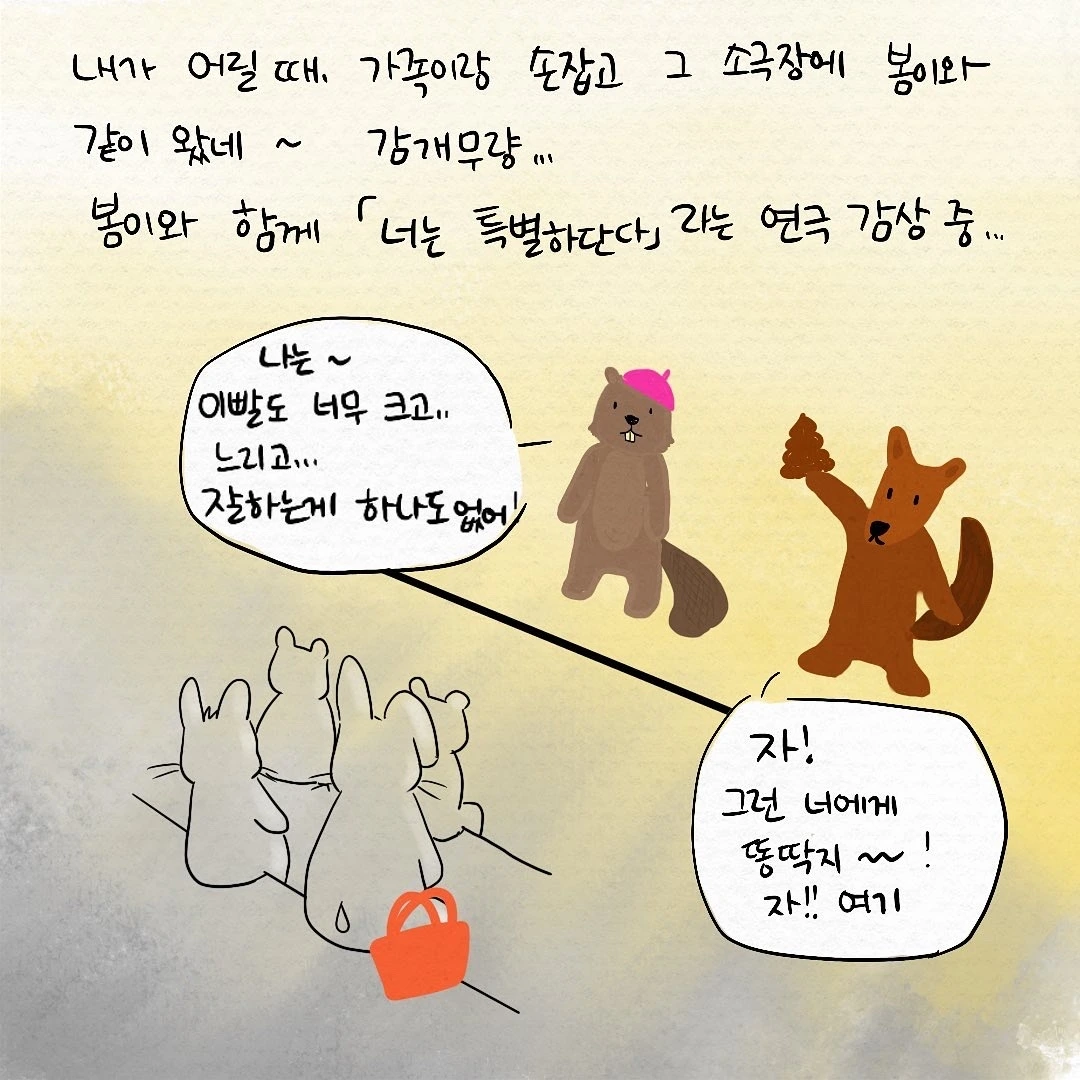 내가 어릴 때. 가족이랑 손잡고 그 소극장에 봄이와
같이 왔네 ~ 감개무량...
봄이와 함께 「너는 특별하단다」라는 연극 감상 중...
나는 ~
이빨도 너무 크고..
느리고...
잘하는게 하나도 없어!
자!
그런 너에게
똥딱지 ~~ !
자!! 여기